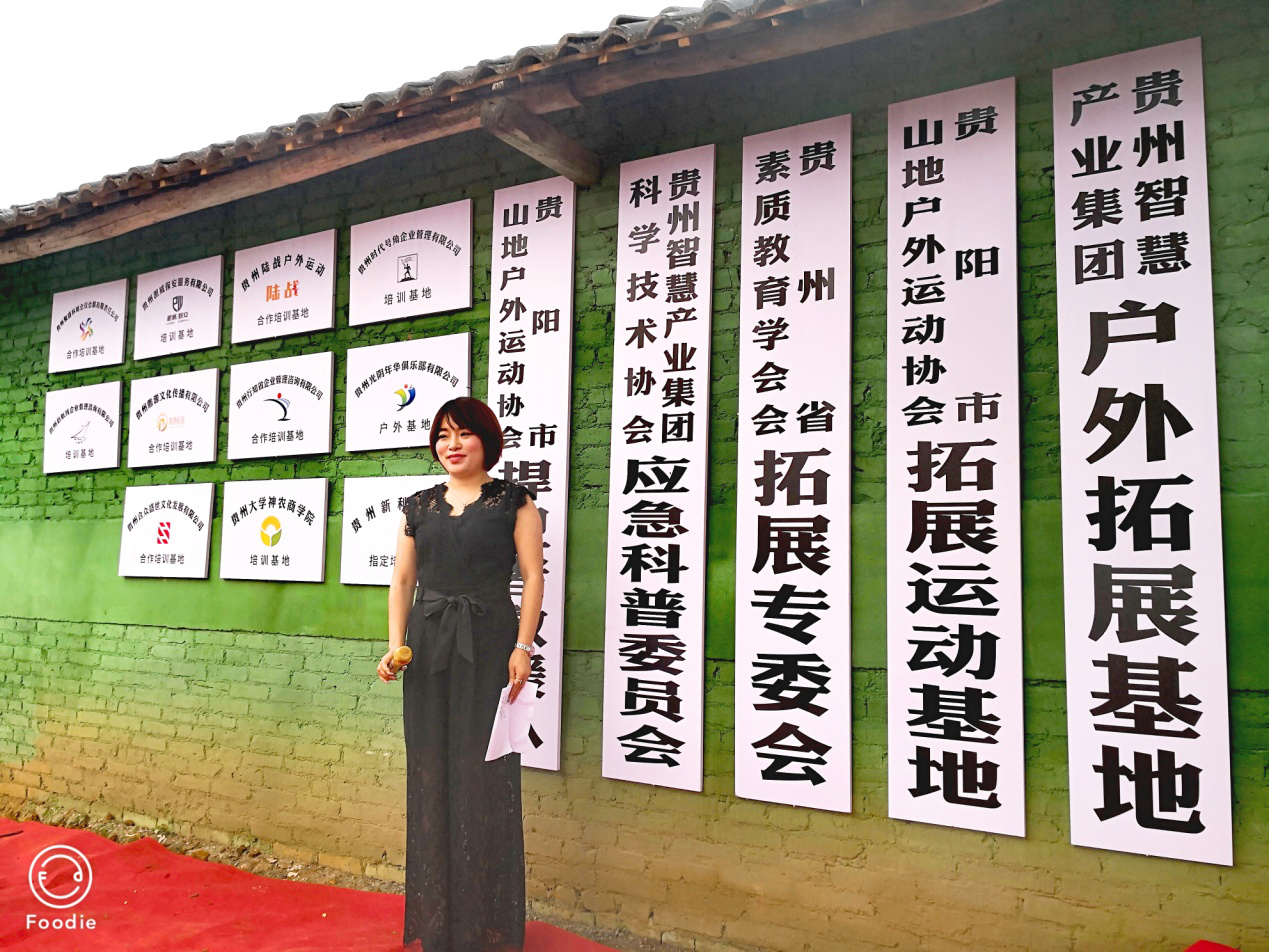 贵州时代号角企业管理有限公司
培训基地
贵州陆战户外运动
陆战
合作培训基地
培训基地
合作培训基地
贵州光阴年华俱乐部有限公司
户外基地
贵州行知谷企业管理咨询有限公司
合作培训基地
合作培训基地
培训基地
贵州新利
指定培
贵州大学神农商学院
培训基地
贵州合众盛世文化发展有限公司
合作培训基地
贵阳市
山地户外运动协会
贵州智慧产业集团
科学技术协会
应急科普委员会
贵州省
素质教育学会会
拓展专委会
贵阳市
山地户外运动协会
拓展运动基地
贵州智慧
产业集团
户外拓展基地
Foodie